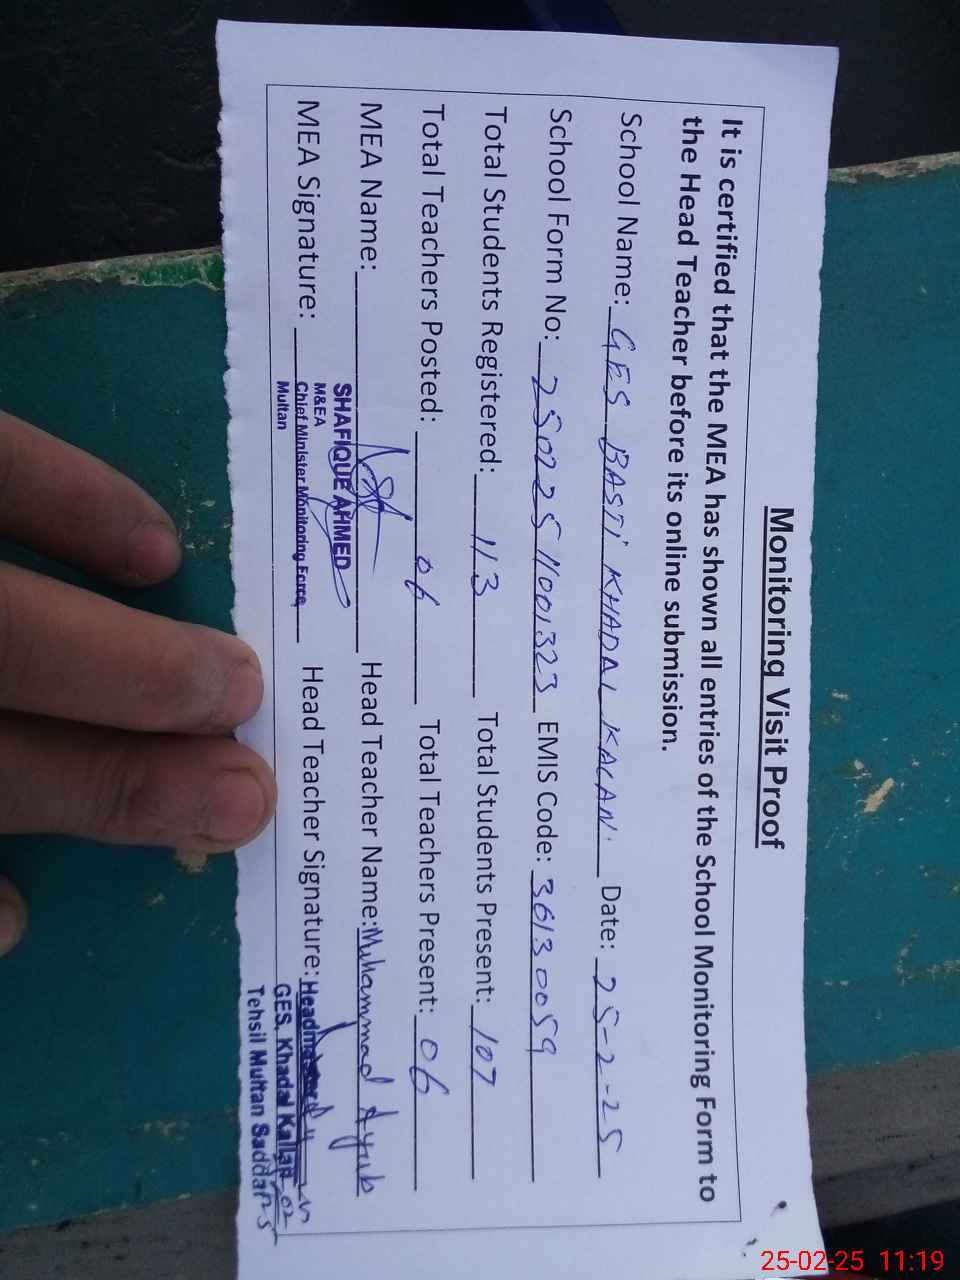 Monitoring Visit Proof
It is certified that the MEA has shown all entries of the School Monitoring Form to
the Head Teacher before its online submission.
School Name: GES BASTI KHADAL KALAN. Date: 25-2-25
School Form No: 250225 11001323 EMIS Code: 36130059
Total Students Registered: 113 Total Students Present: 107
Total Teachers Posted: 06 Total Teachers Present: 06
MEA Name: Head Teacher Name: Muhammad Ayub
SHAFIQUE AHMED
M&EA
MEA Signature: Chief Minister Monitoring Force Head Teacher Signature: Headmaster
Multan
GES. Khadal Kallan
Tehsil Multan Saddar
25-02-25 11:19